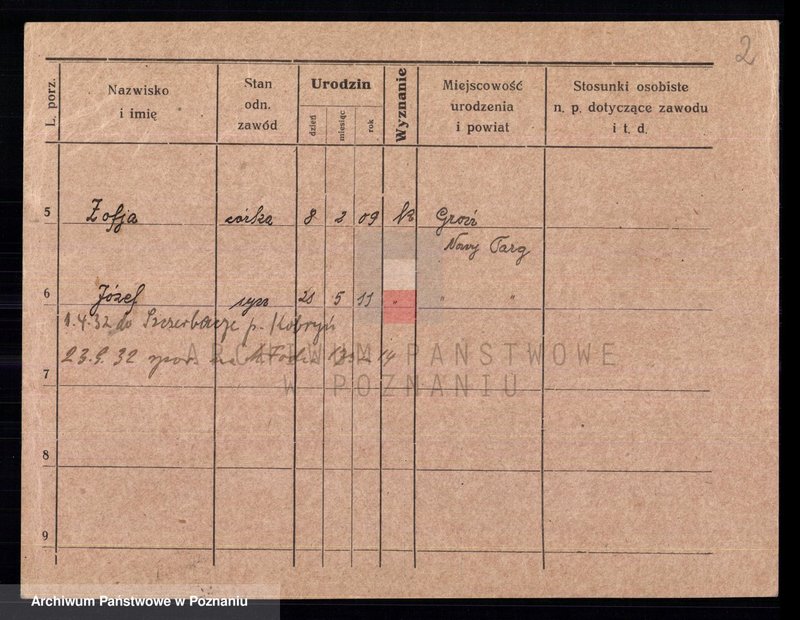 2
L. porz.
Nazwisko
i imię
Stan
odn.
zawód
Urodzin
dzień
miesiąc
rok
Wyznanie
Miejscowość
urodzenia
i powiat
Stosunki osobiste
n. p. dotyczące zawodu
i t. d.
5 Zofja córka 8 2 09 k
Nowy Targ
6 Józef syn 21 5 11 " " "
1.4.32 do p. Kobryń
23.9.32
ARCHIWUM PAŃSTWOWE
W POZNANIU
7
8
9
Archiwum Państwowe w Poznaniu